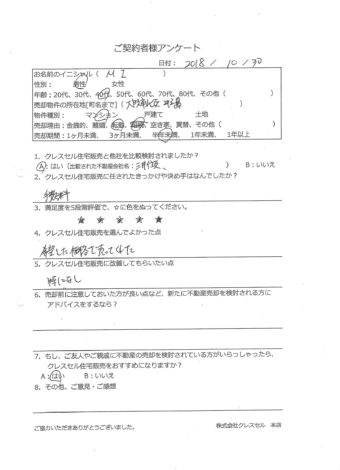 ご契約者様アンケート
日付： 2018 / 10 / 30
お名前のイニシャル（ M I ）
性別： 男性 女性
年齢；20代、30代、40代、50代、60代、70代、80代、その他（ ）
売却物件の所在地[町名まで]（大阪市北区 ）
物件種別： マンション 戸建て 土地
売却理由：金銭的、離婚、転勤、相続、空き家、買替、その他（ ）
売却期間：1ヶ月未満、 3ヶ月未満、 半年未満、 1年未満、 1年以上
1. クレスセル住宅販売と他社を比較検討されましたか？
A：はい（比較された不動産会社名： ） B：いいえ
2. クレスセル住宅販売に任されたきっかけや決め手はなんでしたか？
3. 満足度を5段階評価で、☆に色をぬってください。
★ ★ ★ ★ ★
4. クレスセル住宅販売を選んでよかった点
希望した価格で売ってくれた
5. クレスセル住宅販売に改善してもらいたい点
特になし
6. 売却前に注意しておいた方が良い点など、新たに不動産売却を検討される方に
アドバイスをするなら？
7. もし、ご友人やご親戚に不動産の売却を検討されている方がいらっしゃったら、
クレスセル住宅販売をおすすめになりますか？
A：はい B：いいえ
8. その他、ご意見・ご感想
ご協力いただきありがとうございました。 株式会社クレスセル 本店